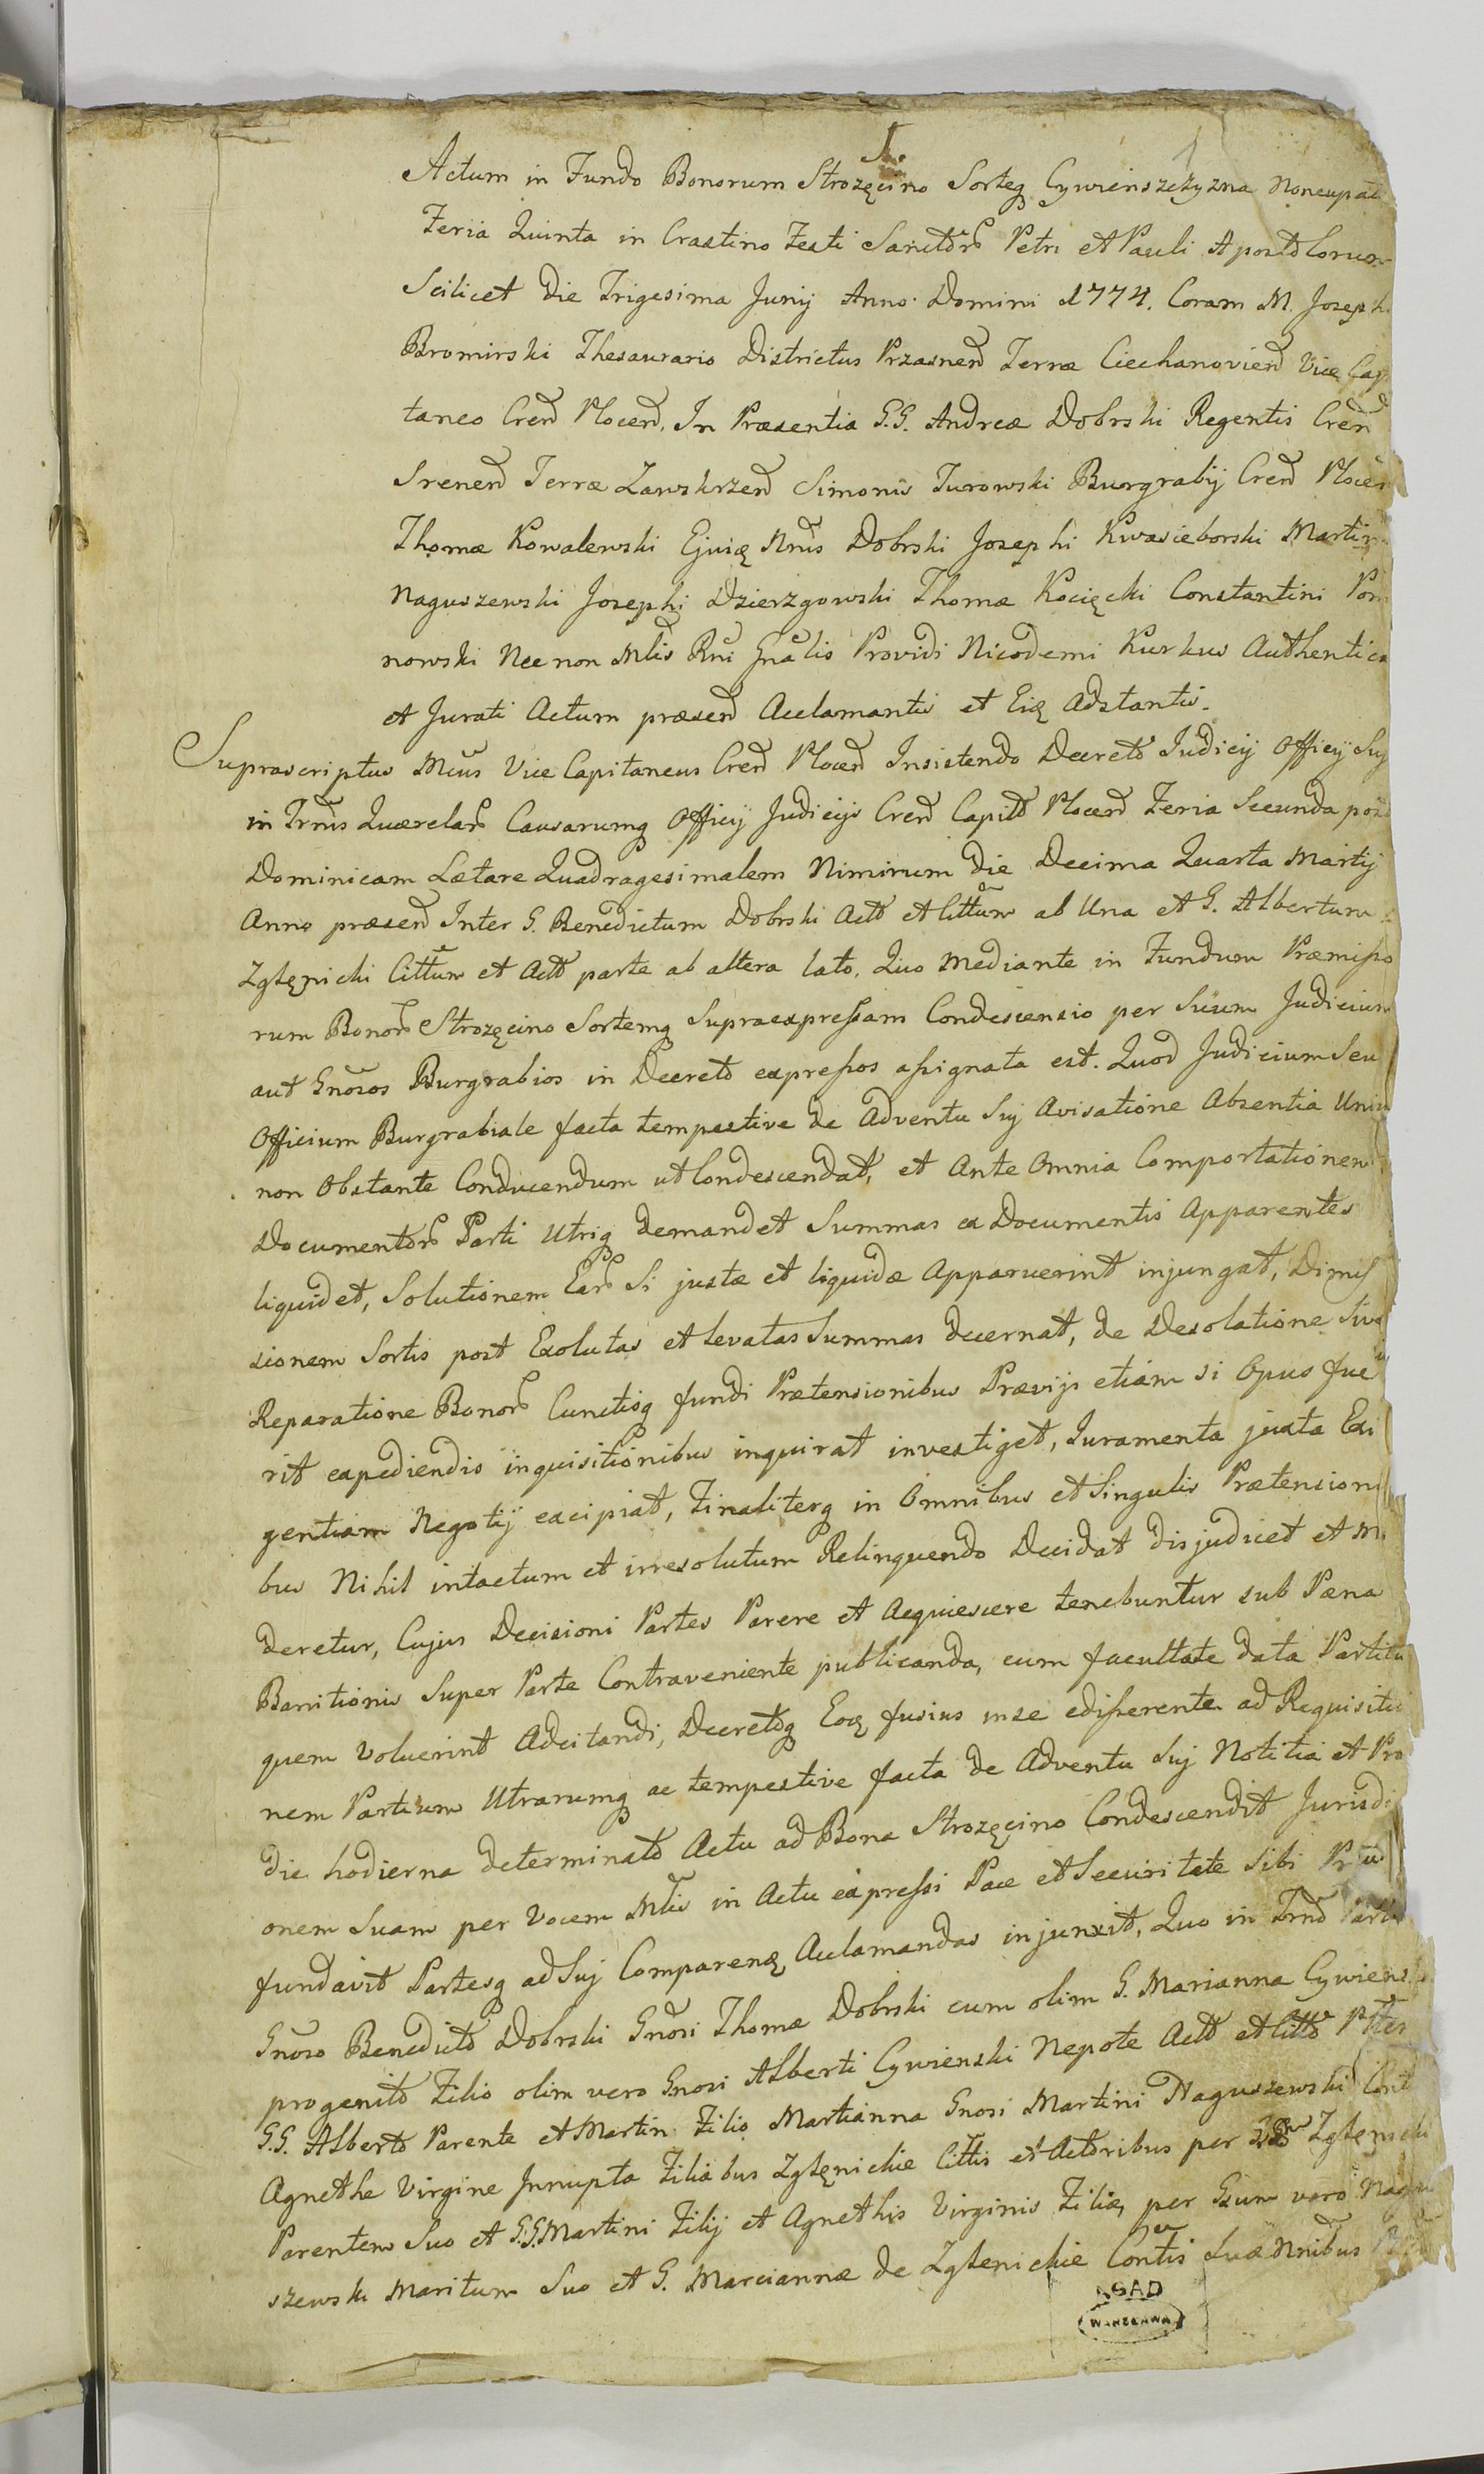 1.
Actum in Fundo Bonorum Strozęcino Sorteq Cywienszczyzna noncupat
Feria Quinta in Crastino Festi Sanctor Petri et Pauli Apostolorum
Scilicet die Trigesima Junij Anno Domini 1774. Coram M. Joseph
Bromirski Thesaurario Districtus Przasnen Terræ Ciechanovien Vice Cap
taneo Cren Plocen. In Præsentia G.G. Andreæ Dobrski Regentis Cren
Srenen Terræ Zawskrzen Simonis Turowski Burgrabij Cren Plocen
Thomæ Kowalewski Ejusq Nris Dobrski Josephi Kwasieborski Martin
Naguszewski Josephi Dzierzgowski Thomæ Kocięcki Constantini Pom
nowski Nec non Mlis Rni Gnalis Providi Nicodemi Kurkus Authentica
et Jurati Actum præsen Acclamantis et Eiq Adstantis.
Suprascriptus Mcus Vice Capitaneus Cren Plocen Insistendo Decreto Judicij Officij Suj
in Trnis Quærelar Causarumq Officij Judicijs Cren Capit Plocen Feria Secunda post
Dominicam Lætare Quadragesimalem Nimirum die Decima Quarta Martij
Anno præsen Inter G. Benedictum Dobrski Act et Cittum ab Una et G. Albertum
Zglenicki Cittum et Act parte ab altera lato. Quo Mediante in Fundum Præmisso
rum Bonor Strozęcino Sortemq Supraexpressam Condescensio per Suum Judicium
aut Gnosos Burgrabios in Decreto expressos assignata est. Quod Judicium Seu
Officium Burgrabiale facta tempestive de Adventu Suj Avisatione Absentia Uniu
non Obstante Conducendum ut Condescendat, et Ante Omnia Comportationem
Documentor Parti Utriq demandet Summas ex Documentis Apparentes
liquidet, Solutionem Ear Si justæ et liquidæ Apparuerint injungat, Dimis
sionem Sortis post Exolutas et levatas Summas decernat, de Desolatione Sive
Reparatione Bonor Cunctisq fundi Prætensionibus Prævijs etiam si Opus fue
rit expediendis inquisitionibus inquirat investiget, Iuramenta juxta Exi
gentiam Negotij excipiat, Finaliterq in Omnibus et Singulis Prætensioni
bus Nihil intactum et irresolutum Relinquendo Decidat disjudicet et M
deretur, Cujus Decisioni Partes Parere et Acquiescere tenebuntur sub Pæna
Bannitionis Super Parte Contraveniente publicanda, cum facultate data Partibu
quem voluerint Adcitandi, Decretoq Eoq fusius in se edisserente ad Requisitio
nem Partium Utrarumq ac tempestive facta de Adventu Suj Notitia et Pro
die hodierna determinato Actu ad Bona Strozęcino Condescendit Jurisdi
onem Suam per Vocem Mlis in Actu expressi Pace et Securitate Sibi
fundavit Partesq ad Suj Comparenq Acclamandas injunxit, Quo in Trno
Gnoso Benedicto Dobrski Gnosi Thomæ Dobrski cum olim G. Marianna Cywiensk
progenito Filio olim vero Gnosi Alberti Cywienski Nepote Act et Citto
G.G. Alberto Parente et Martin Filio Martianna Gnosi Martini Naguszewski
Agnethe Virgine Innupta Filiabus Zglenickie Cittis et Actoribus per Zglenicki
Parentem Suo et G.G. Martini Filij et Agnethis Virginis Filiæ, per Gsum vero Nagu
szewski Maritum Suo et G. Marciannæ de Zglenickie Contis Suæ Nnibus
AGAD
WARSZAWA